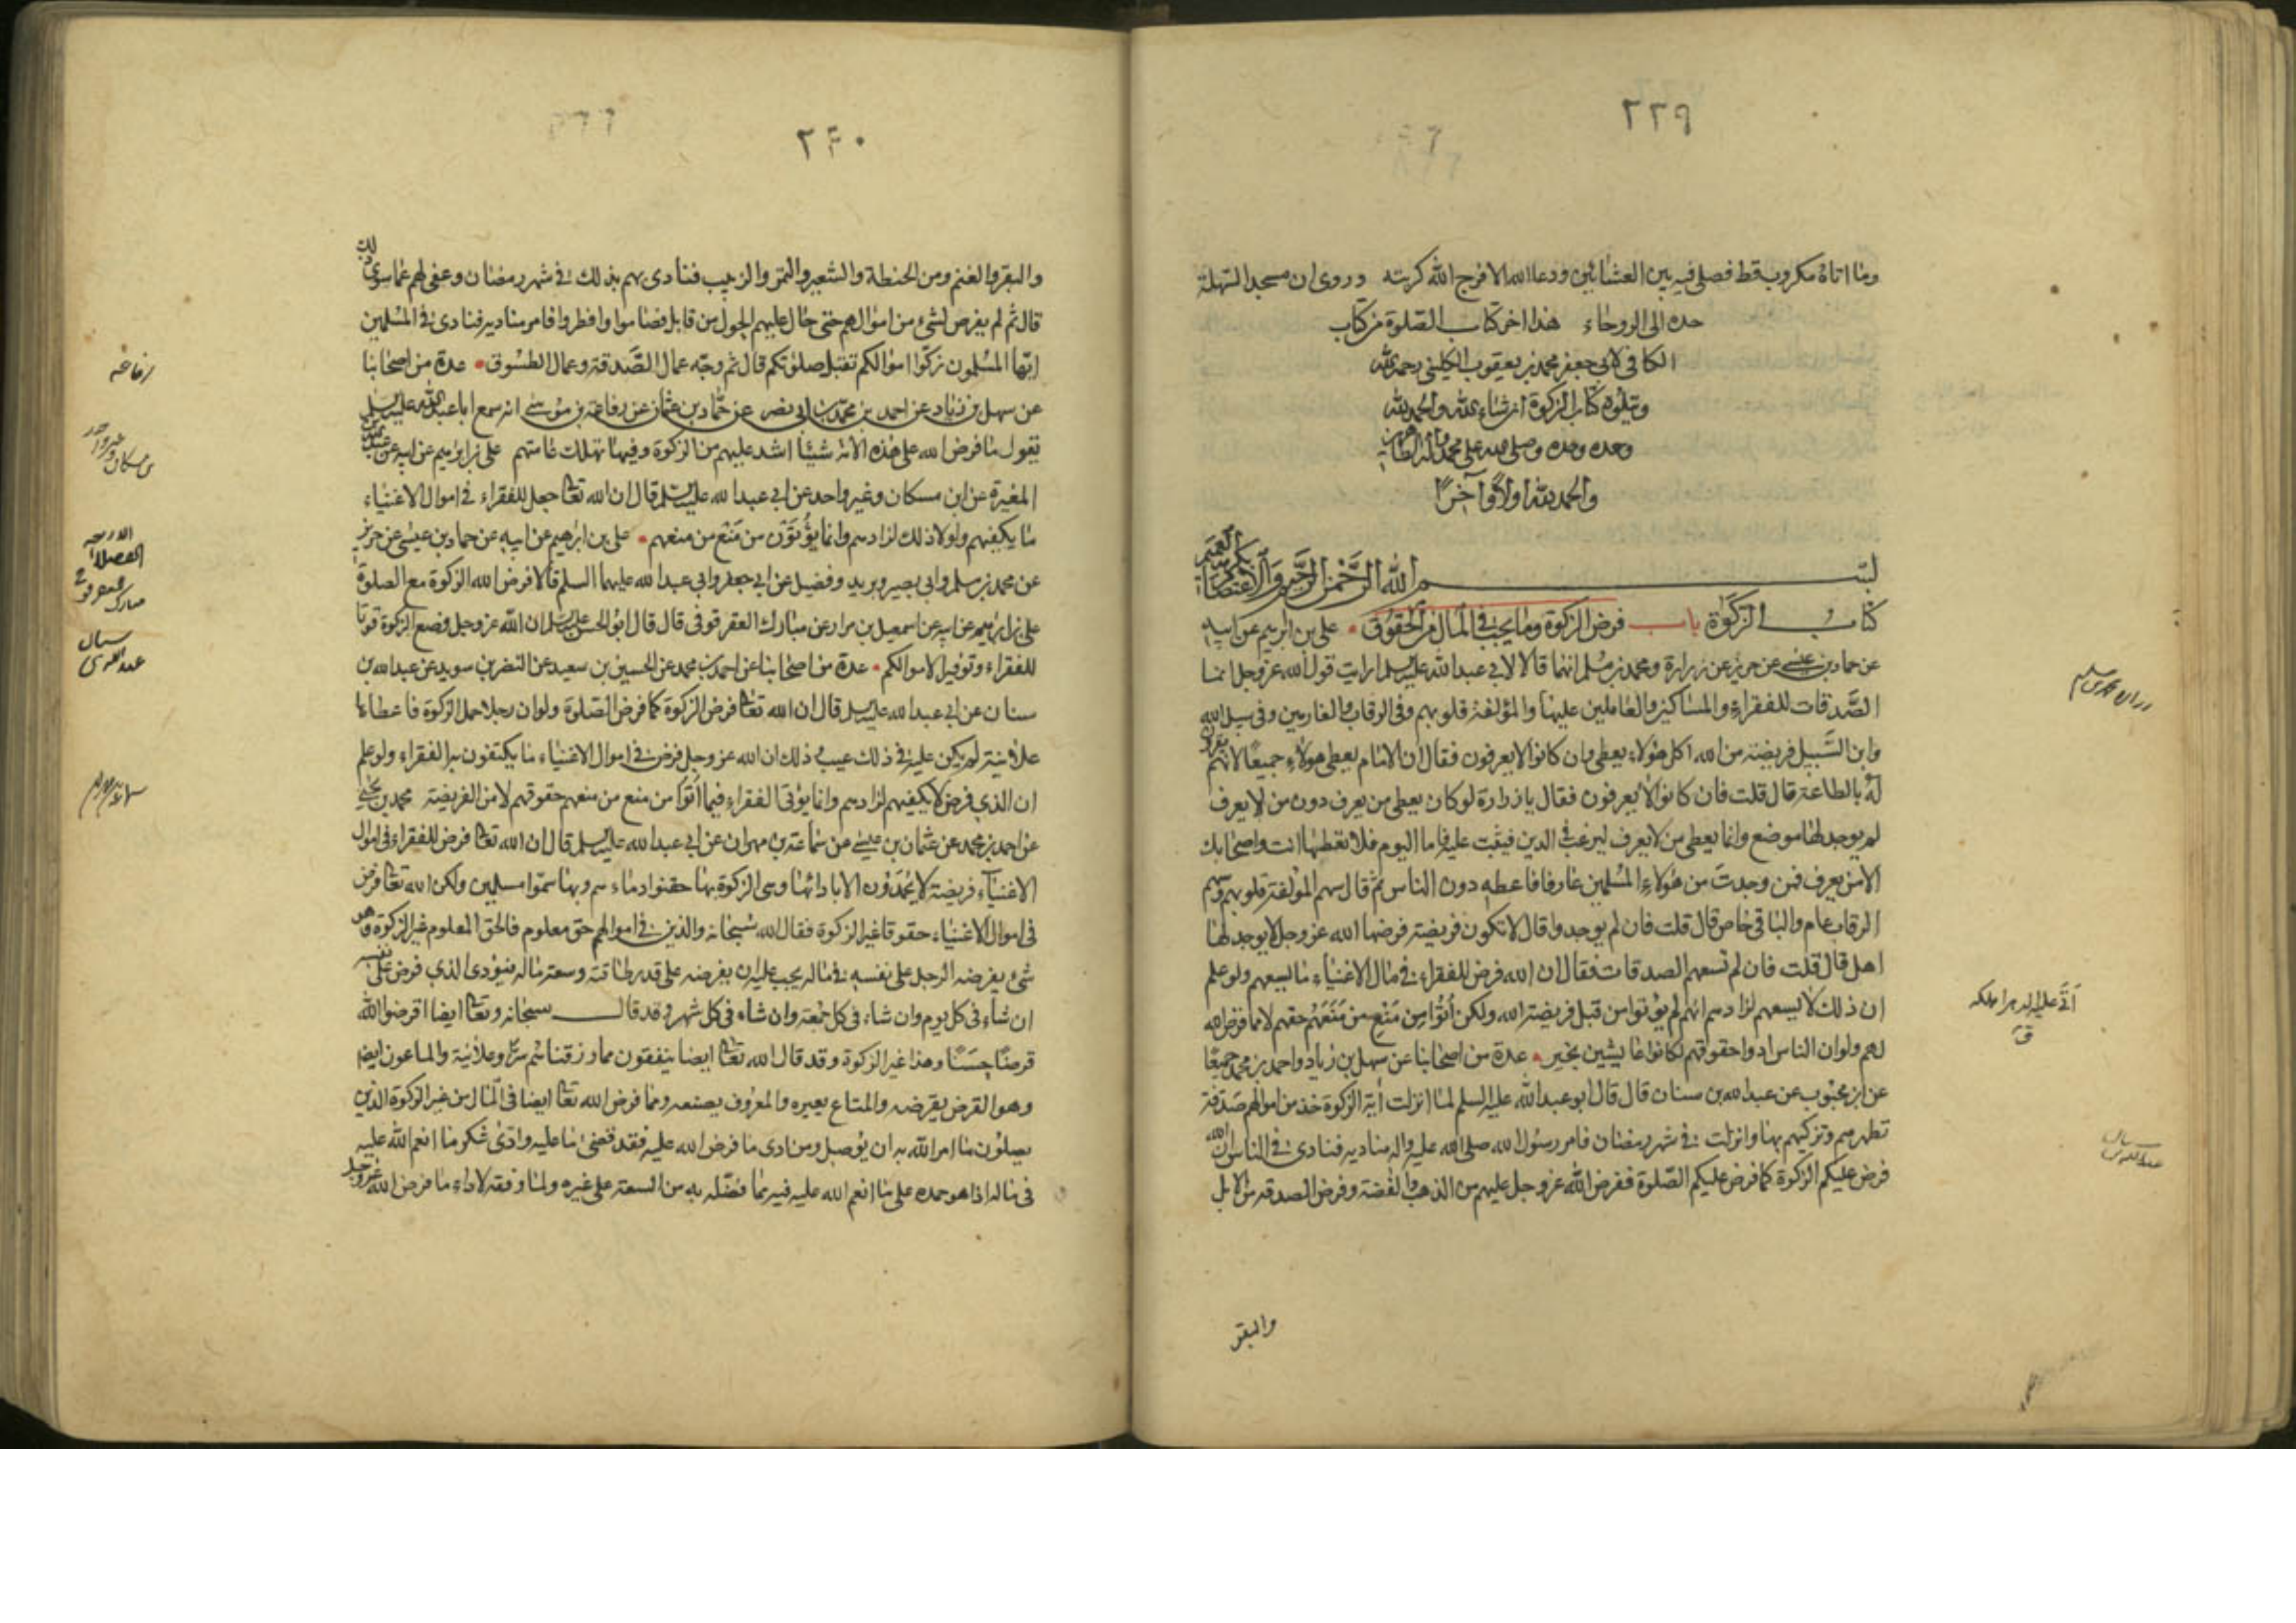 ٢٣٩
وما اتاه مكروب قط فصلى فيه بين العشائين ودعا الله الا فرج الله كربته وروى ان مسجد السهلة
حده الى الروحاء هذا اخر كتاب الصلوة من كتاب
الكافى لابى جعفر محمد بن يعقوب الكلينى رحمه الله
ويتلوه كتاب الزكوة ان شاء الله والحمد لله
وحده وحده وصلى الله على محمد وآله الطاهرين
والحمد لله اولا وآخرا
بسم الله الرحمن الرحيم
كتاب الزكوة باب فرض الزكوة وما يجب فى المال من الحقوق على بن ابرهيم عن ابيه
عن حماد بن عيسى عن حريز عن زرارة ومحمد بن مسلم انهما قالا لابى عبد الله عليه السلم ارايت قول الله عز وجل انما
الصدقات للفقراء والمساكين والعاملين عليها والمؤلفة قلوبهم وفى الرقاب والغارمين وفى سبيل الله
وابن السبيل فريضة من الله اكل هؤلاء يعطى وان كانوا لا يعرفون فقال ان الامام يعطى هؤلاء جميعا لانهم يقرون
له بالطاعة قال قلت فان كانوا لا يعرفون فقال يا زرارة لو كان يعطى من يعرف دون من لا يعرف
لم يوجد لها موضع وانما يعطى من لا يعرف ليرغب فى الدين فيثبت عليه فاما اليوم فلا تعطها انت واصحابك
الا من يعرف فمن وجدت من هؤلاء المسلمين عارفا فاعطه دون الناس ثم قال سهم المؤلفة قلوبهم وسهم
الرقاب عام والباقى خاص قال قلت فان لم يوجدوا قال لا تكون فريضة فرضها الله عز وجل لا يوجد لها
اهل قال قلت فان لم تسعهم الصدقات فقال ان الله فرض للفقراء فى مال الاغنياء ما يسعهم ولو علم
ان ذلك لا يسعهم لزادهم انهم لم يؤتوا من قبل فريضة الله ولكن أتوا من منع من منعهم حقهم لا مما فرض الله
لهم ولو ان الناس ادوا حقوقهم لكانوا عايشين بخير عدة من اصحابنا عن سهل بن زياد واحمد بن محمد جميعا
عن ابن محبوب عن عبد الله بن سنان قال قال ابو عبد الله عليه السلم لما انزلت آية الزكوة خذ من اموالهم صدقة
تطهرهم وتزكيهم بها وانزلت فى شهر رمضان فامر رسول الله صلى الله عليه واله مناديه فنادى فى الناس ان الله
فرض عليكم الزكوة كما فرض عليكم الصلوة ففرض الله عز وجل عليهم من الذهب والفضة وفرض الصدقة من الابل
والبقر
٢٤٠
والبقر والغنم ومن الحنطة والشعير والتمر والزبيب فنادى بهم بذلك فى شهر رمضان وعفى لهم عما سوى ذلك
قال ثم لم يفرض لشئ من اموالهم حتى حال عليهم الحول من قابل فصاموا وافطروا فامر مناديه فنادى فى المسلمين
ايها المسلمون زكوا اموالكم تقبل صلوتكم قال ثم وجه عمال الصدقة وعمال الطسوق عدة من اصحابنا
عن سهل بن زياد عن احمد بن محمد بن ابى نصر عن حماد بن عثمان عن رفاعة بن موسى انه سمع ابا عبد الله عليه السلم
يقول ما فرض الله على هذه الامة شيئا اشد عليهم من الزكوة وفيها تهلك عامتهم على بن ابرهيم عن ابيه عن عبد الله بن
المغيرة عن ابن مسكان وغير واحد عن ابى عبد الله عليه السلم قال ان الله تعالى جعل للفقراء فى اموال الاغنياء
ما يكفيهم ولولا ذلك لزادهم وانما يؤتون من منع من منعهم على بن ابرهيم عن ابيه عن حماد بن عيسى عن حريز
عن محمد بن مسلم وابى بصير وبريد وفضيل عن ابى جعفر وابى عبد الله عليهما السلم قالا فرض الله الزكوة مع الصلوة
على بن ابرهيم عن ابيه عن اسمعيل بن مرار عن مبارك العقرقوفى قال قال ابو الحسن عليه السلم ان الله عز وجل وضع الزكوة قوتا
للفقراء وتوفيرا لاموالكم عدة من اصحابنا عن احمد بن محمد عن الحسين بن سعيد عن النضر بن سويد عن عبد الله بن
سنان عن ابى عبد الله عليه السلم قال ان الله تعالى فرض الزكوة كما فرض الصلوة ولو ان رجلا حمل الزكوة فاعطاها
علانية لم يكن عليه فى ذلك عيب وذلك ان الله عز وجل فرض فى اموال الاغنياء ما يكتفون به الفقراء ولو علم
ان الذى فرض لا يكفيهم لزادهم وانما يؤتى الفقراء فيما أتوا من منع من منعهم حقوقهم لا من الفريضة محمد بن يحيى
عن احمد بن محمد عن عثمان بن عيسى عن سماعة بن مهران عن ابى عبد الله عليه السلم قال ان الله تعالى فرض للفقراء فى اموال
الاغنياء فريضة لا يحمدون الا بادائها وهى الزكوة بها حقنوا دماءهم وبها سموا مسلمين ولكن الله تعالى فرض
فى اموال الاغنياء حقوقا غير الزكوة فقال الله سبحانه والذين فى اموالهم حق معلوم فالحق المعلوم غير الزكوة وهو
شئ يفرضه الرجل على نفسه فى ماله يجب عليه ان يفرضه على قدر طاقته وسعة ماله فيؤدى الذى فرض على نفسه
ان شاء فى كل يوم وان شاء فى كل جمعة وان شاء فى كل شهر وقد قال سبحانه وتعالى ايضا اقرضوا الله
قرضا حسنا وهذا غير الزكوة وقد قال الله تعالى ايضا ينفقون مما رزقناهم سرا وعلانية والماعون ايضا
وهو القرض يقرضه والمتاع يعيره والمعروف يصنعه ومما فرض الله تعالى ايضا فى المال من غير الزكوة الذين
يصلون ما امر الله به ان يوصل ومن ادى ما فرض الله عليه فقد قضى ما عليه وادى شكر ما انعم الله عليه
فى ماله اذا هو حمده على ما انعم الله عليه فيه مما فضله به من السعة على غيره ولما وفقه لاداء ما فرض الله عز وجل
رفاعه